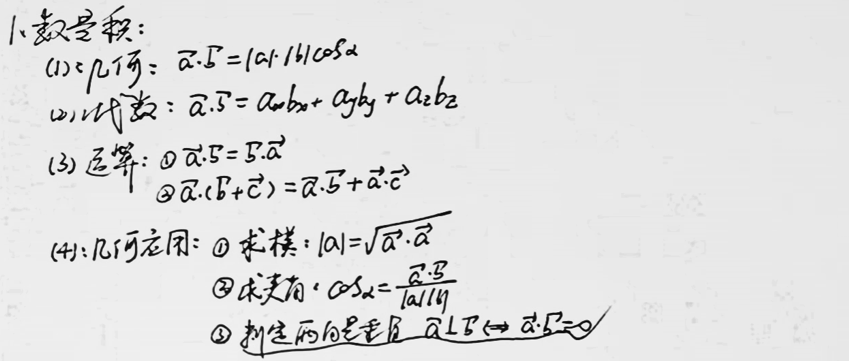 1、数量积:
(1):几何: $\vec{a}\cdot\vec{b}=|a|\cdot|b|\cos\alpha$
(2)、代数: $\vec{a}\cdot\vec{b}=a_xb_x+a_yb_y+a_zb_z$
(3) 运算: ① $\vec{a}\cdot\vec{b}=\vec{b}\cdot\vec{a}$
② $\vec{a}\cdot(\vec{b}+\vec{c})=\vec{a}\cdot\vec{b}+\vec{a}\cdot\vec{c}$
(4):几何应用: ① 求模: $|a|=\sqrt{\vec{a}\cdot\vec{a}}$
② 求夹角: $\cos\alpha=\frac{\vec{a}\cdot\vec{b}}{|a||b|}$
③ 判定两向量垂直 $\vec{a}\perp\vec{b}\Leftrightarrow\vec{a}\cdot\vec{b}=0$